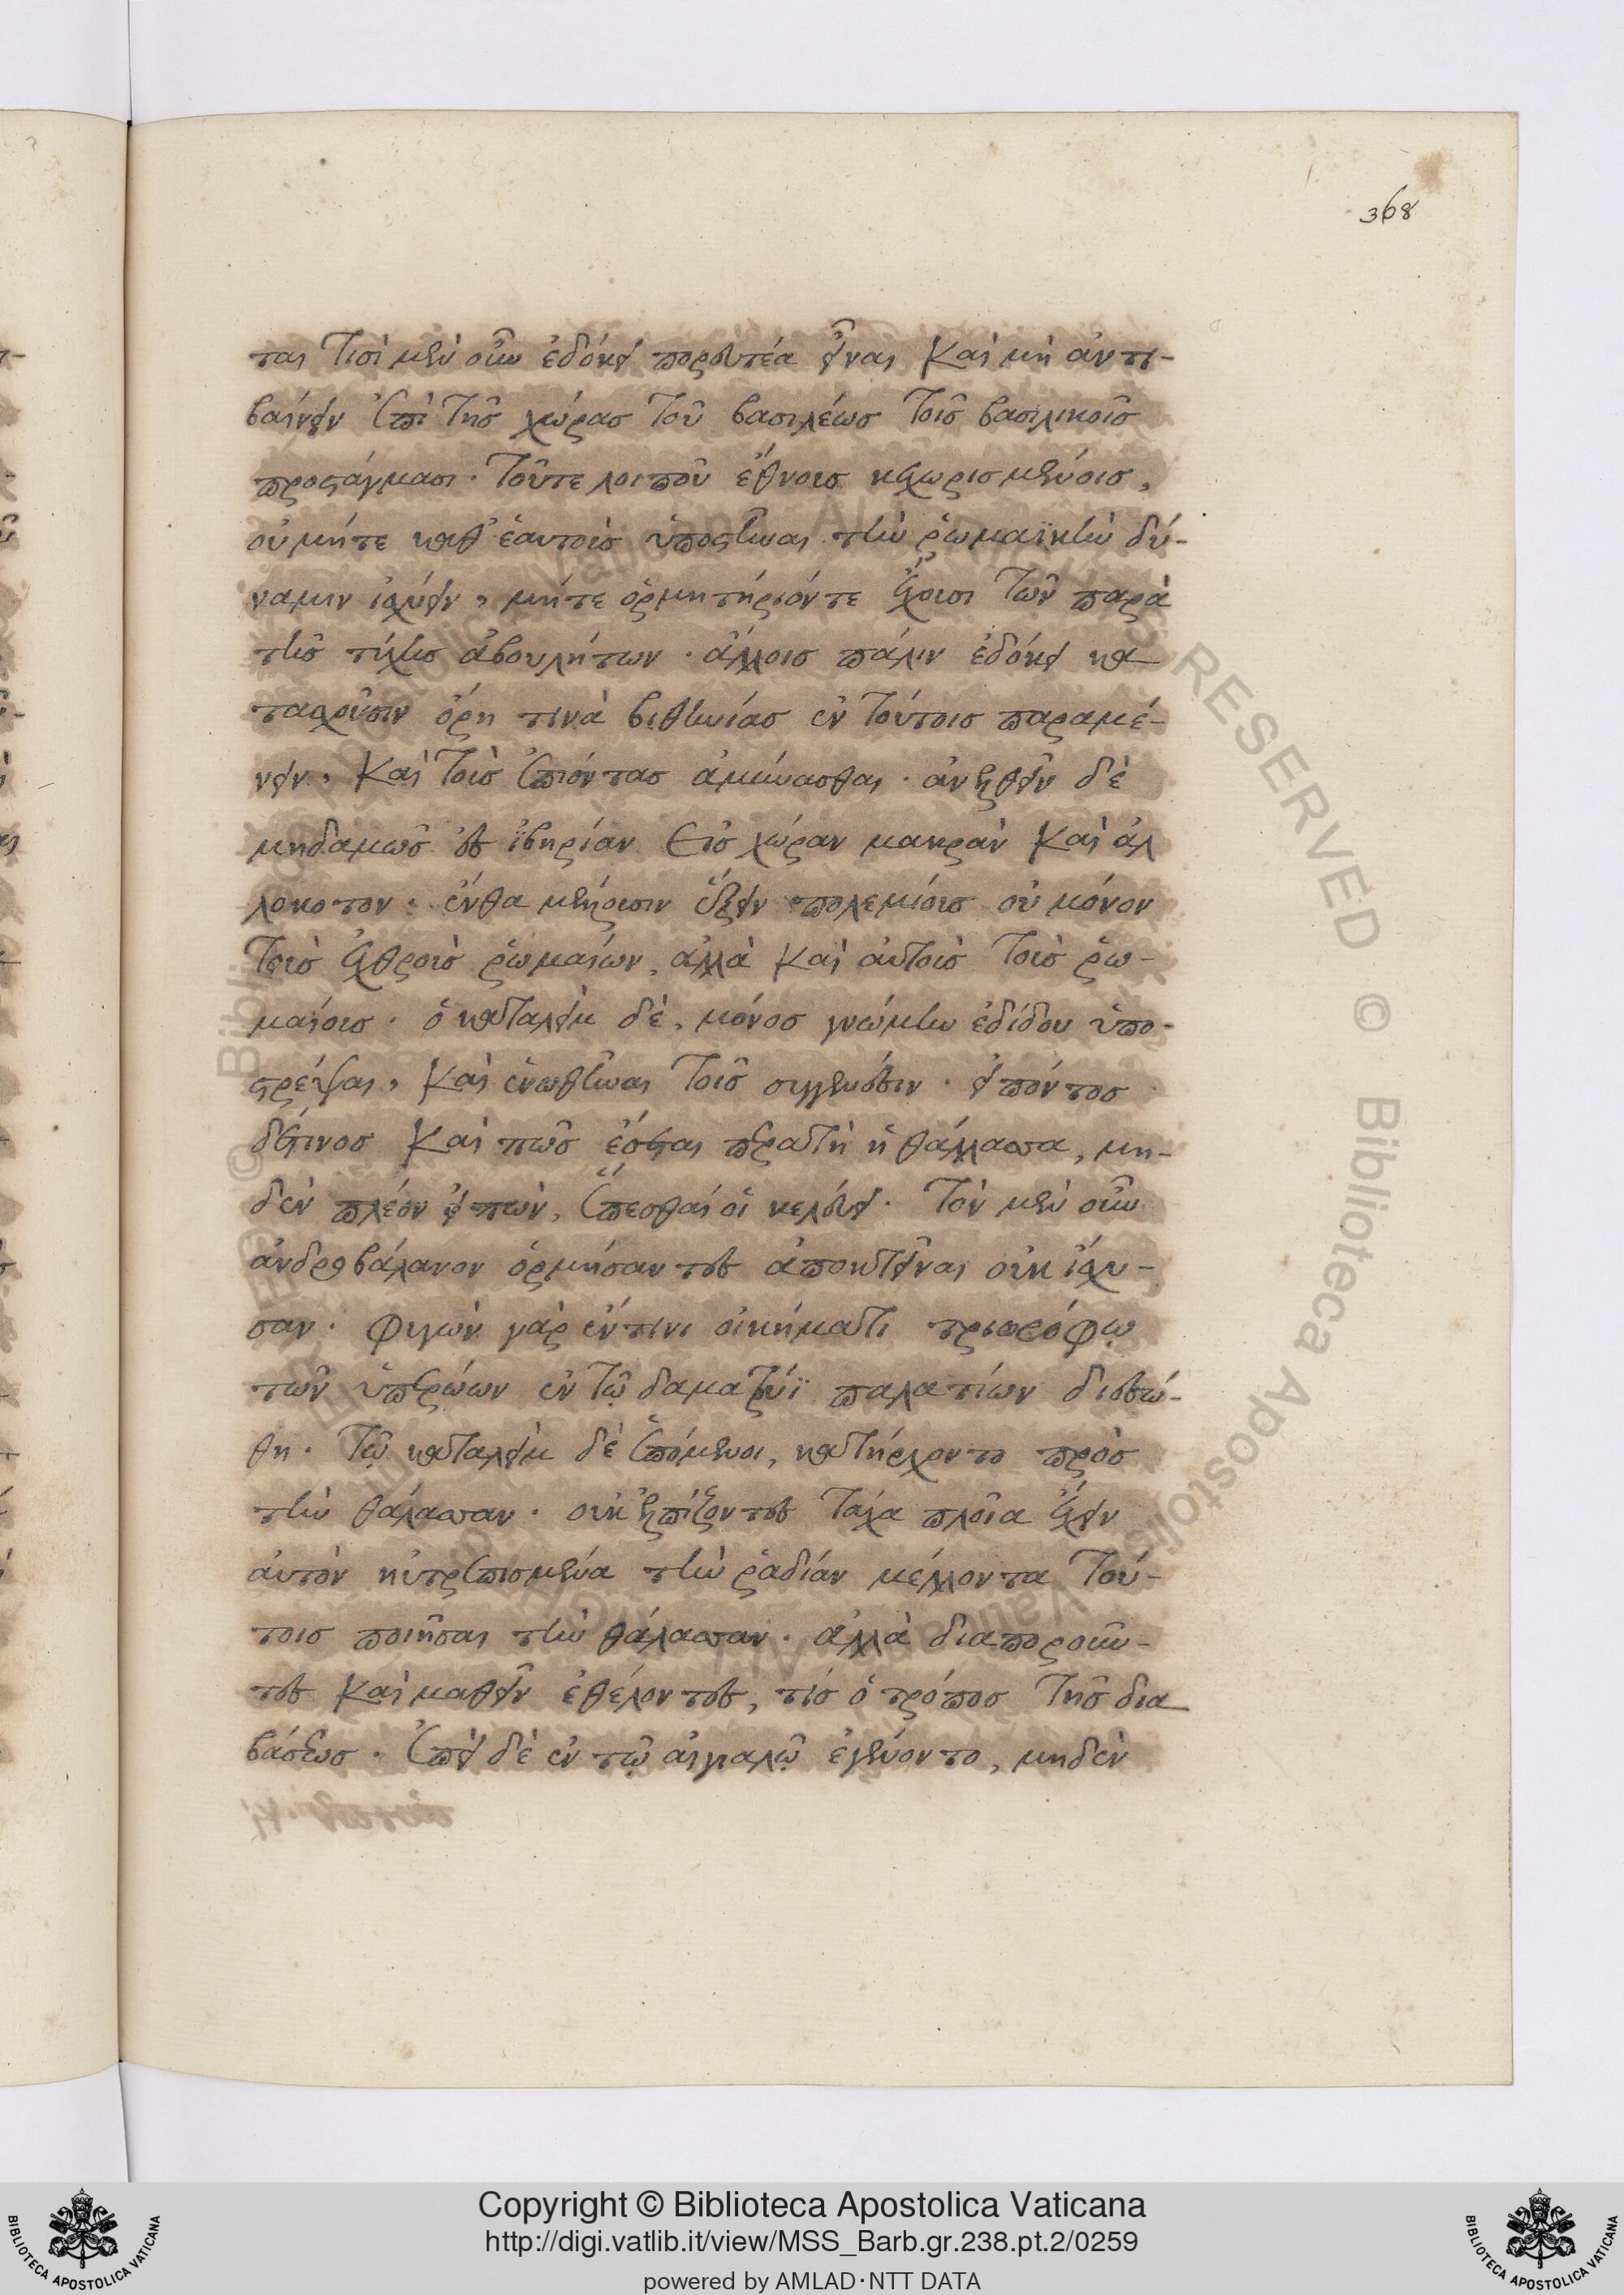 368
ται τισὶ μὲν οὖν ἐδόκει πορευτέα εἶναι καὶ μὴ ἀντι-
βαίνειν ἐπὶ τῆς χώρας τοῦ βασιλέως τοῖς βασιλικοῖς
προστάγμασι. τοῦτε λοιποῦ ἔθνους κεχωρισμένους,
οὐ μήτε καθ' ἑαυτοὺς ὑποστῆναι τὴν ῥωμαϊκὴν δύ-
ναμιν ἰσχύειν, μήτε ὁρμητήριόντε ἔχουσι τῶν παρὰ
τῆς τύχης ἀβουλήτων. ἄλλοις πάλιν ἐδόκει κα
ταSχοῦσιν ὄρη τινὰ βιθυνίας ἐν τούτοις παραμέ-
νειν, καὶ τοὺς ἐπιόντας ἀμύνασθαι. ἀνελθεῖν δὲ
μηδαμῶς ἐς ἰβηρίαν εἰς χώραν μακρὰν καὶ ἀλ
λοκοτον. ἔνθα μενοῦσιν ἕξειν πολεμίους οὐ μόνον
τοὺς ἐχθροὺς ῥωμαίων, ἀλλὰ καὶ αὐτοὺς τοὺς ῥω-
μαίους. ὁ κατταλεὶμ δὲ, μόνος γνώμην ἐδίδου ὑπο-
στρέψαι, καὶ ἑνωθῆναι τοῖς συγγενέσιν. εἰπόντος
δέτινος καὶ πῶς ἔσεται περατὴ ἡ θάλλασσα, μη-
δὲν πλέον εἰπὼν, ἕπεσθαί οἱ κελεύει. τὸν μὲν οὖν
ἀνδροβάλανον ὁρμήσαντες ἀποκτεῖναι οὐκ ἴσχυ-
σαν. φυγὼν γὰρ ἔντινι οἰκήματι τριωρόφῳ
τῶν ὑπερώων ἐν τῷ δαματρύϊ παλατίων διεσώ-
θη. τῷ κατταλεὶμ δὲ ἑπόμενοι, κατήρχοντο πρὸς
τὴν θάλασσαν. οὐκ ἐλπίζοντες τάχα πλοῖα ἔχειν
αὐτὸν ηὐτρεπισμένα τὴν ῥαδίαν μέλλοντα τού-
τοις ποιῆσαι τὴν θάλασσαν. ἀλλὰ διαποροῦν-
τες καὶ μαθεῖν ἐθέλοντες, τίς ὁ τρόπος τῆς δια
βάσεως. ἐπεὶ δὲ ἐν τῷ αἰγιαλῷ ἐγένοντο, μηδὲν
Copyright © Biblioteca Apostolica Vaticana
http://digi.vatlib.it/view/MSS_Barb.gr.238.pt.2/0259
powered by AMLAD·NTT DATA
BIBLIOTECA APOSTOLICA VATICANA
BIBLIOTECA APOSTOLICA VATICANA